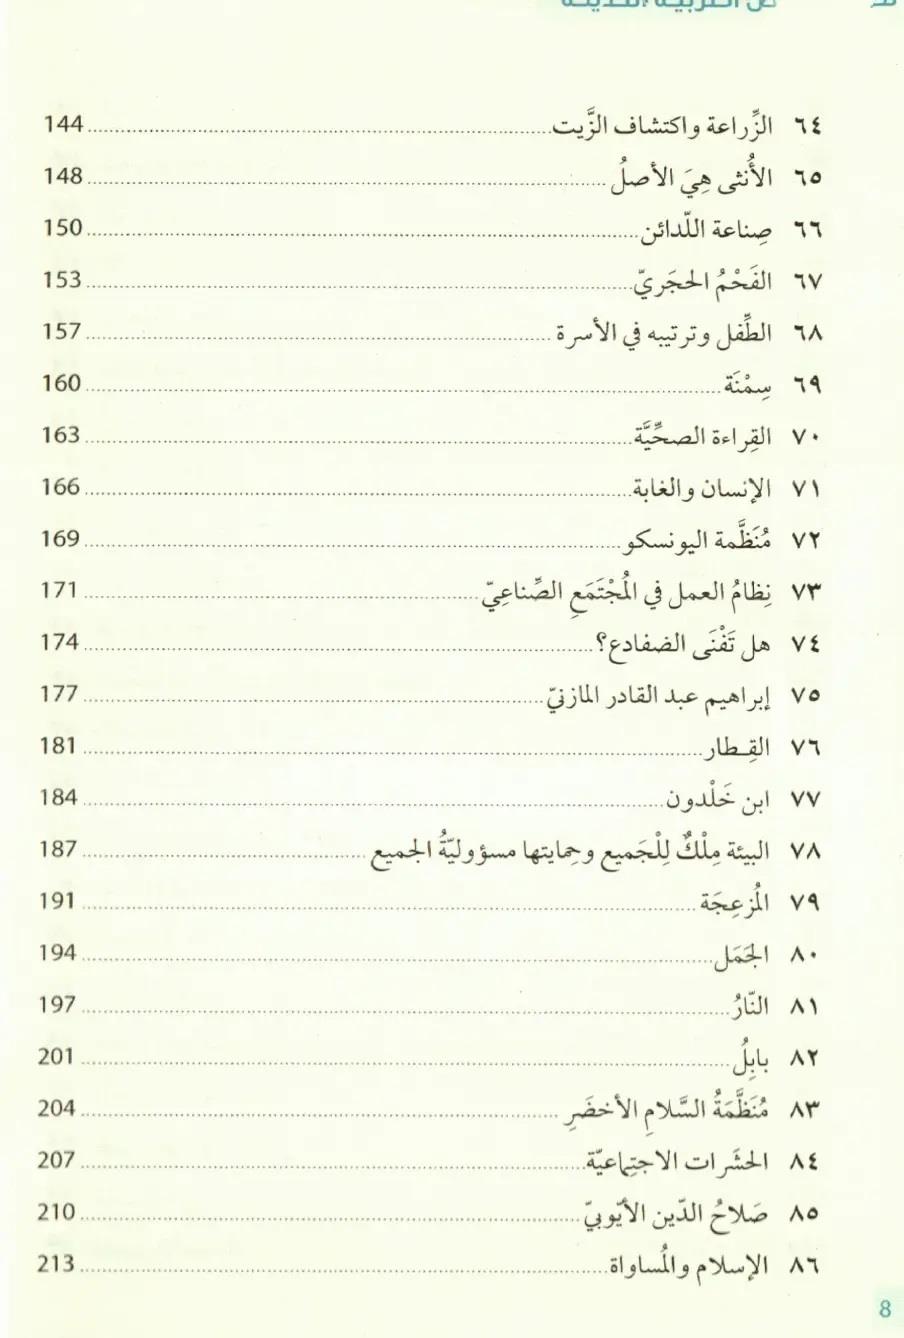 ٦٤ الزِّراعة واكتشاف الزَّيت ........ 144
٦٥ الأُنثى هِيَ الأصلُ ........ 148
٦٦ صِناعة اللّدائن ........ 150
٦٧ الفَحْمُ الحجَريّ ........ 153
٦٨ الطِّفل وترتيبه في الأسرة ........ 157
٦٩ سِمْنَة ........ 160
٧٠ القِراءة الصحِّيَّة ........ 163
٧١ الإنسان والغابة ........ 166
٧٢ مُنَظَّمة اليونسكو ........ 169
٧٣ نِظامُ العمل في المُجْتَمَعِ الصِّناعِيّ ........ 171
٧٤ هل تَفْنَى الضفادع؟ ........ 174
٧٥ إبراهيم عبد القادر المازنيّ ........ 177
٧٦ القِطار ........ 181
٧٧ ابن خَلْدون ........ 184
٧٨ البيئة مِلْكٌ لِلْجَميع وحِمايتها مسؤوليّةُ الجميع ........ 187
٧٩ المُزعِجَة ........ 191
٨٠ الجَمَل ........ 194
٨١ النّارُ ........ 197
٨٢ بابِلُ ........ 201
٨٣ مُنَظَّمَةُ السَّلامِ الأخضَرِ ........ 204
٨٤ الحشَرات الاجتِماعيّة ........ 207
٨٥ صَلاحُ الدّين الأيّوبيّ ........ 210
٨٦ الإسلام والمُساواة ........ 213
8